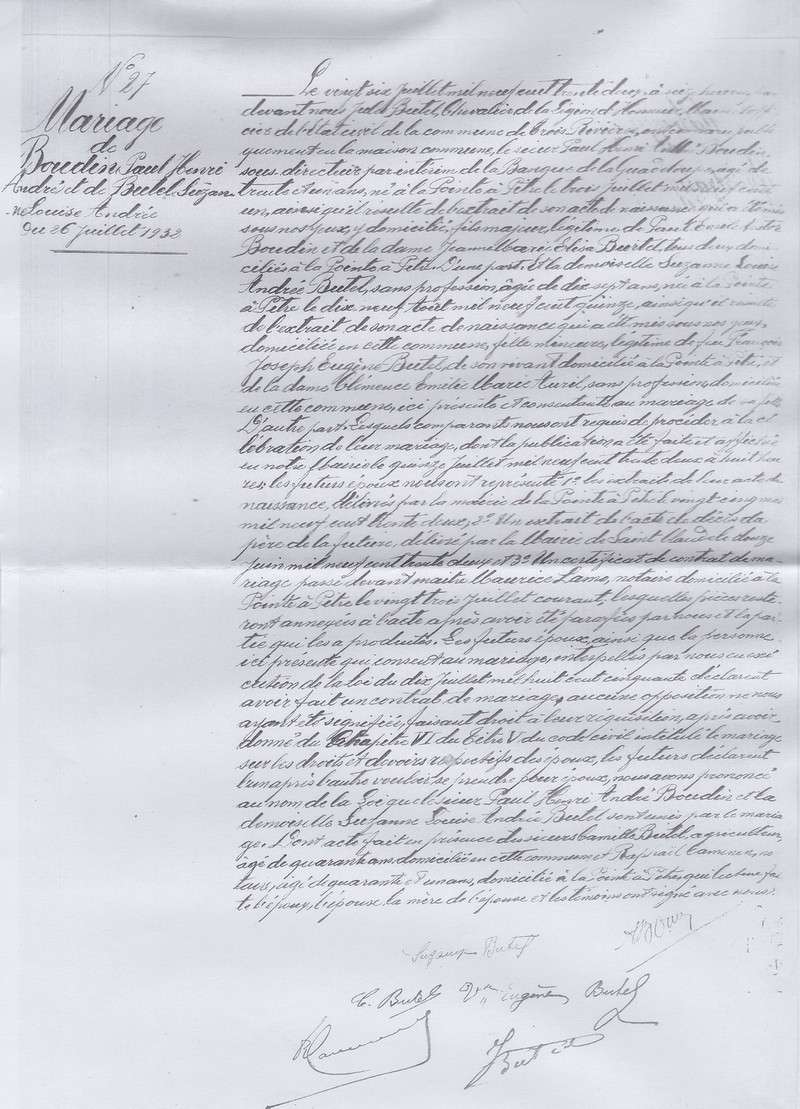 N° 27
Mariage
de
Boudin Paul Henri
André et de Butel Suzan-
ne Louise Andrée
Du 26 juillet 1932
Le vingt six juillet mil neuf cent trente deux, à seize heures, par
devant nous Jules Butel, Chevalier de la Légion d'Honneur, Maire, offi-
cier de l'état civil de la commune de Trois Rivières, ont comparu publi-
quement en la maison commune, le sieur Paul Henri André Boudin,
sous-directeur par intérim de la Banque de la Guadeloupe, âgé de
trente et un ans, né à la Pointe à Pitre le trois juillet mil neuf cent
un, ainsi qu'il résulte de l'extrait de son acte de naissance qui a été mis
sous nos yeux, y domicilié, fils majeur, légitime de Paul
Boudin et de la dame Jeanne Marie Elisa Beertel tous deux domi-
ciliés à la Pointe à Pitre. D'une part. Et la demoiselle Suzanne Louise
Andrée Butel, sans profession, âgée de dix sept ans, née à la Pointe
à Pitre le dix neuf Août mil neuf cent quinze, ainsi qu'il résulte
de l'extrait de son acte de naissance qui a été mis sous nos yeux,
domiciliée en cette commune, fille mineure, légitime de feu François
Joseph Eugène Butel, de son vivant domicilié à la Pointe à Pitre, et
de la dame Clémence Emélie Marie Auril, sans profession, domiciliée
en cette commune, ici présente et consentante au mariage de sa fille
D'autre part. Lesquels comparants nous ont requis de procéder à la cé
lébration de leur mariage, dont la publication a été faite et affichée
en notre Mairie le quinze juillet mil neuf cent trente deux à huit heu-
res, les futurs époux nous ont représenté 1° les extraits de leur acte de
naissance, délivrés par la mairie de la Pointe à Pitre le vingt cinq mai
mil neuf cent trente deux, 2° Un extrait de l'acte de décès du
père de la future, délivré par la Mairie de Saint Claude le douze
Juin mil neuf cent trente deux et 3° Un certificat de contrat de ma-
riage passé devant maitre Maurice Lamo, notaire domicilié à la
Pointe à Pitre le vingt trois Juillet courant, lesquelles pièces reste-
ront annexées à l'acte après avoir été parafées par nous et la par-
tie qui les a produites. Les futurs époux, ainsi que la personne
ici présente qui consent au mariage, interpellés par nous en exé
cution de la loi du dix Juillet mil huit cent cinquante déclarent
avoir fait un contrat de mariage, aucune opposition ne nous
ayant été signifiée, faisant droit à leur réquisition, après avoir
donné du Chapitre VI du Titre V du code civil intitulé le mariage
sur les droits et devoirs respectifs des époux, les futurs déclarent
l'un après l'autre vouloir se prendre pour époux, nous avons prononcé
au nom de la Loi que le sieur Paul Henri André Boudin et la
demoiselle Suzanne Louise Andrée Butel sont unis par le maria
ge. Dont acte fait en présence des sieurs Camille Butel, agriculteur,
âgé de quarante ans, domicilié en cette commune et Raphaël
âgé de quarante et un ans, domicilié à la Pointe à Pitre, qui lecture fai
te l'époux, l'épouse, la mère de l'épouse et les témoins ont signé avec nous.
Suzanne Butel
C. Butel Vve Eugène Butel
J Butel